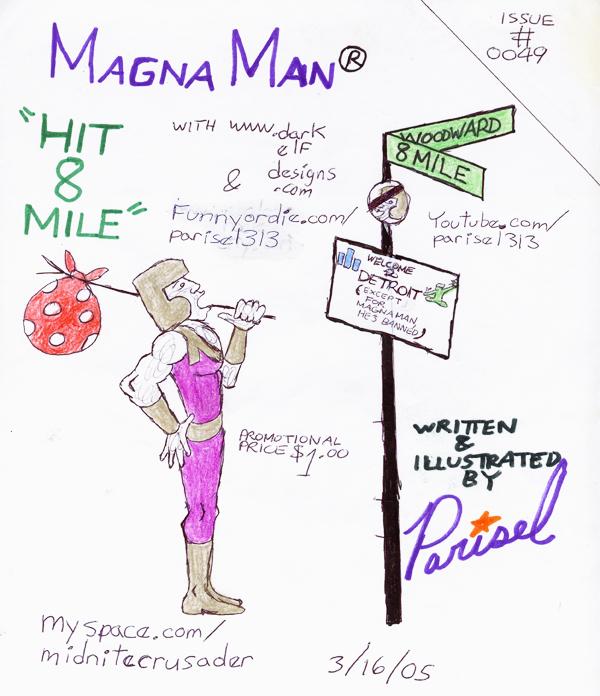 MAGNA MAN ®
ISSUE
#
0049
"HIT
8
MILE"
WITH www.dark
elf
& designs
.com
Funnyordie.com/
parisel313
WOODWARD
8 MILE
Youtube.com/
parisel313
WELCOME
TO
DETROIT
(EXCEPT
FOR
MAGNAMAN
HE'S BANNED)
PROMOTIONAL
PRICE $1.00
WRITTEN
&
ILLUSTRATED
BY
Parisel
myspace.com/
midnitecrusader
3/16/05